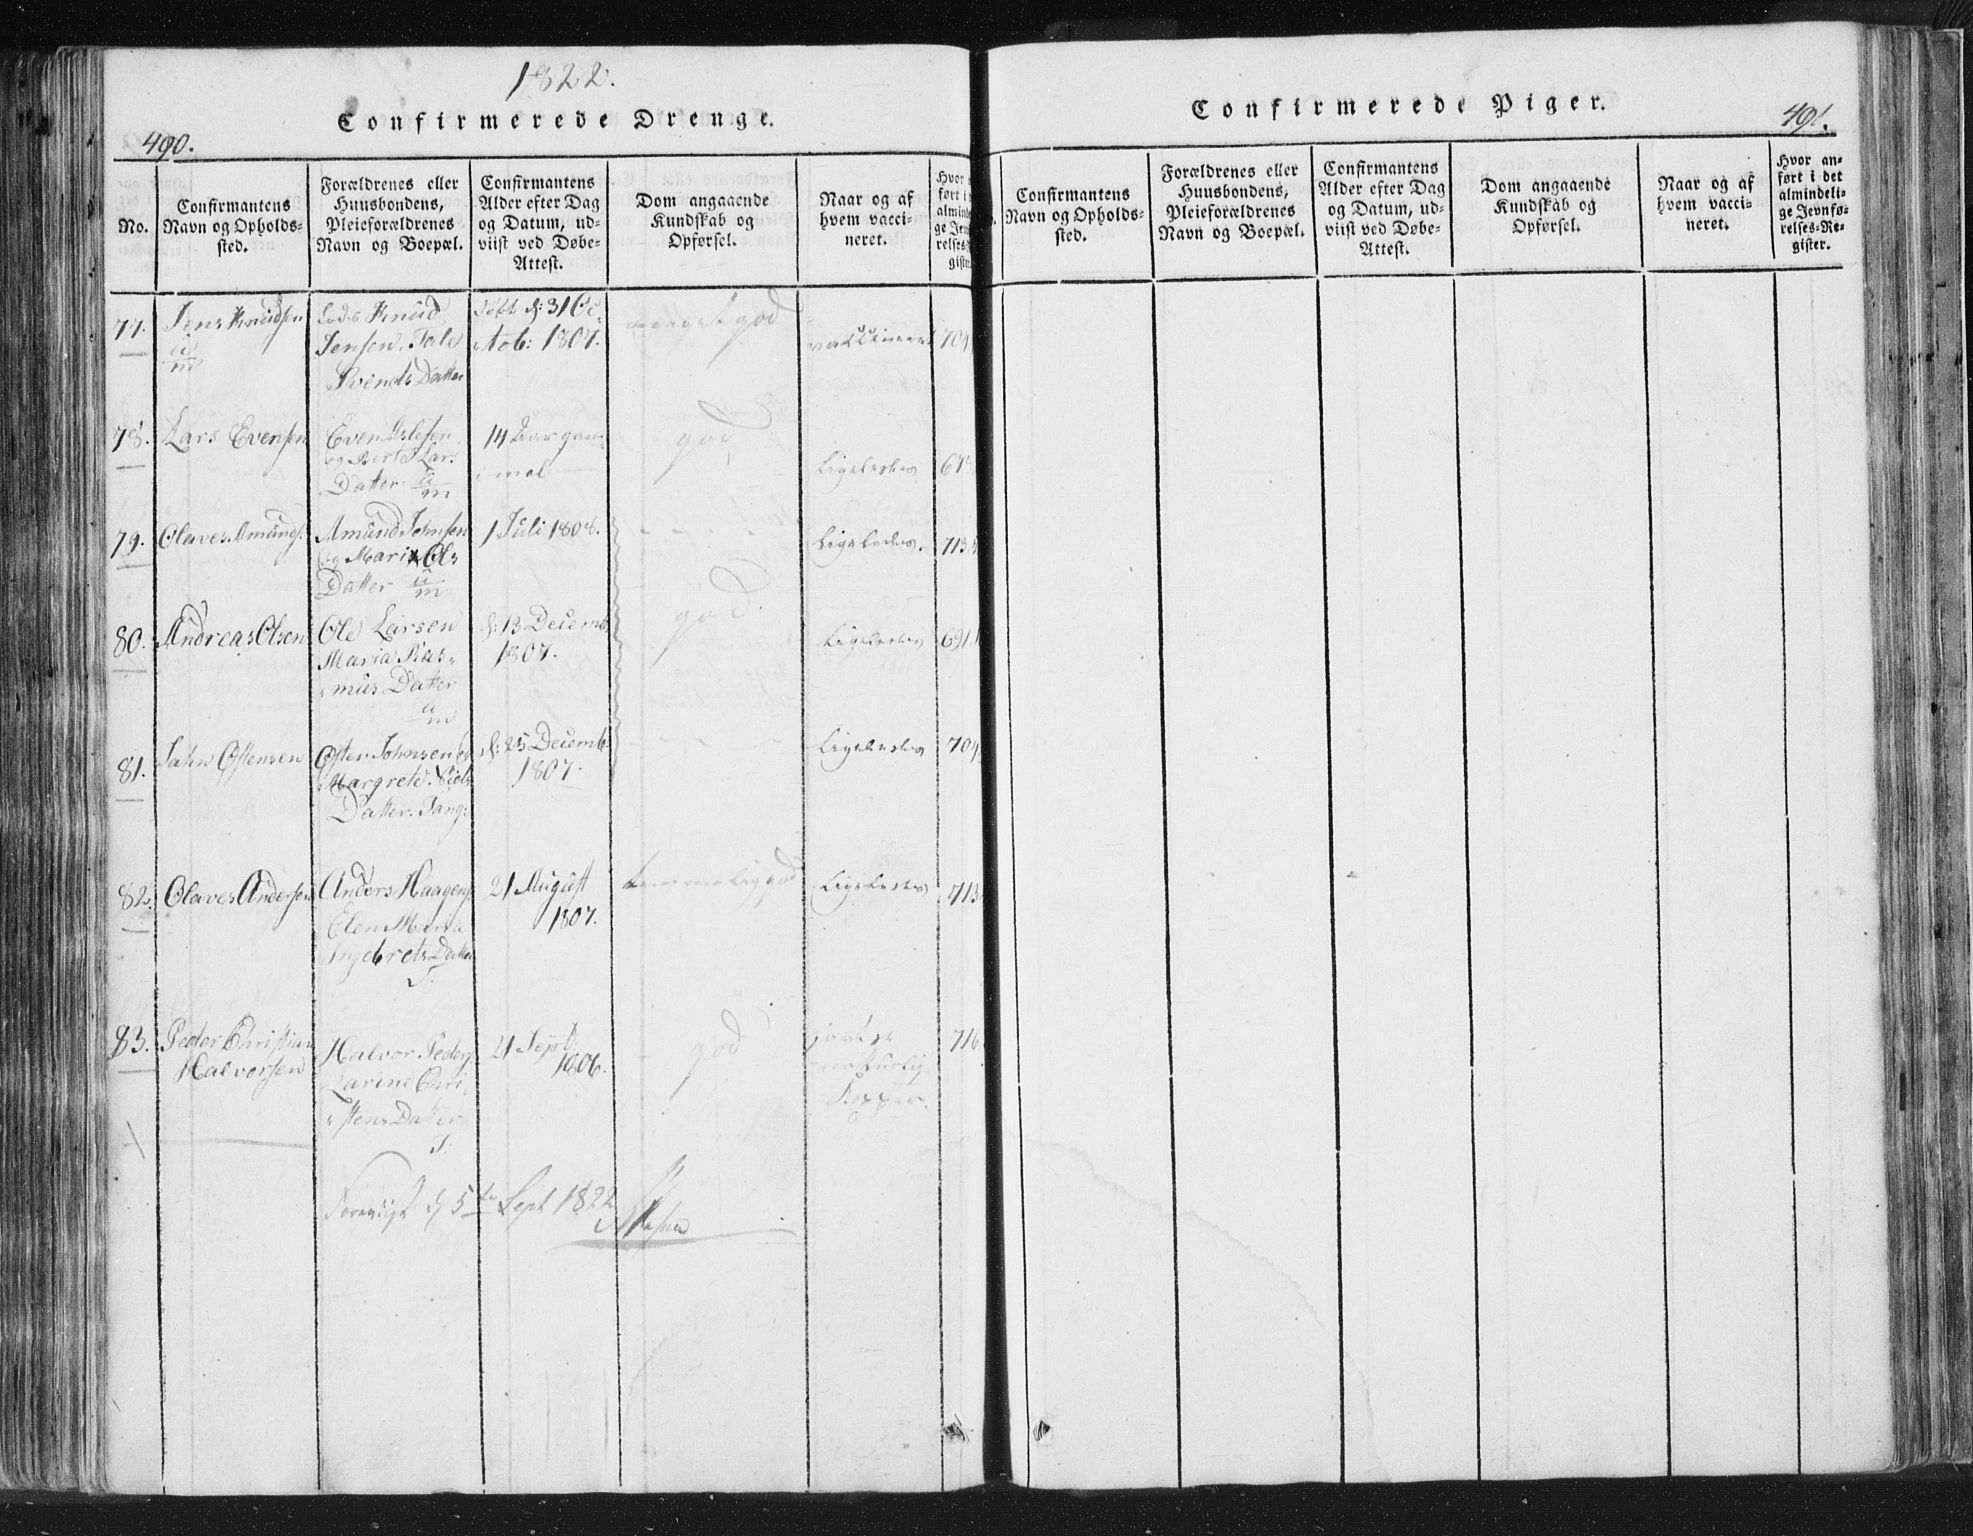 1822.
Confirmerede Drenge.
490.
No.
Confirmantens Navn og Opholds-sted.
Forældrenes eller Huusbondens, Pleieforældrenes Navn og Boepæl.
Confirmantens Alder efter Dag og Datum, ud-viist ved Døbe-Attest.
Dom angaaende Kundskab og Opførsel.
Naar og af hvem vacci-neret.
77.
Jens Knudsen
Knud
Jensen. Tale
Svends Datter
31 Oc
tob: 1807.
meget god
vaccineret
704
78.
Lars Evensen
Even
og Berte Lars
Datter
14 Aar gam
mel
god
Ligeledes
79.
Olaves Amunds.
Amund Johnsen
og Maria Ols
Datter
1 Juli 1808.
Ligeledes.
713
80.
Andreas Olsen
Ole Larsen
Maria Ras„
„mus Datter
f: 13 Decemb
1807.
god.
Ligeledes
691
81.
John Østensen
Østen Johnsen og
Margrete Niels
Datter. Tang:
f: 25 Decemb
1807.
Ligeledes
704
82.
Olaves Andersen
Anders Haagens
Elen Maria
Ingebrets Datter
T.
21 August
1807.
temmelig god
Ligeledes
713
83.
Peder Christian
Halvorsen
Halvor Peders
Larine Chri„
„stens Datter
T.
21 Sept:
1806.
god
naturlig
Kopper.
716
5te Sept 1822
Confirmerede Piger.
491.
Confirmantens Navn og Opholds-sted.
Forældrenes eller Huusbondens, Pleieforældrenes Navn og Boepæl.
Confirmantens Alder efter Dag og Datum, ud-viist ved Døbe-Attest.
Dom angaaende Kundskab og Opførsel.
Naar og af hvem vacci-neret.
Hvor an-ført i det almindeli-ge Jevnfø-relses-Re-gister.